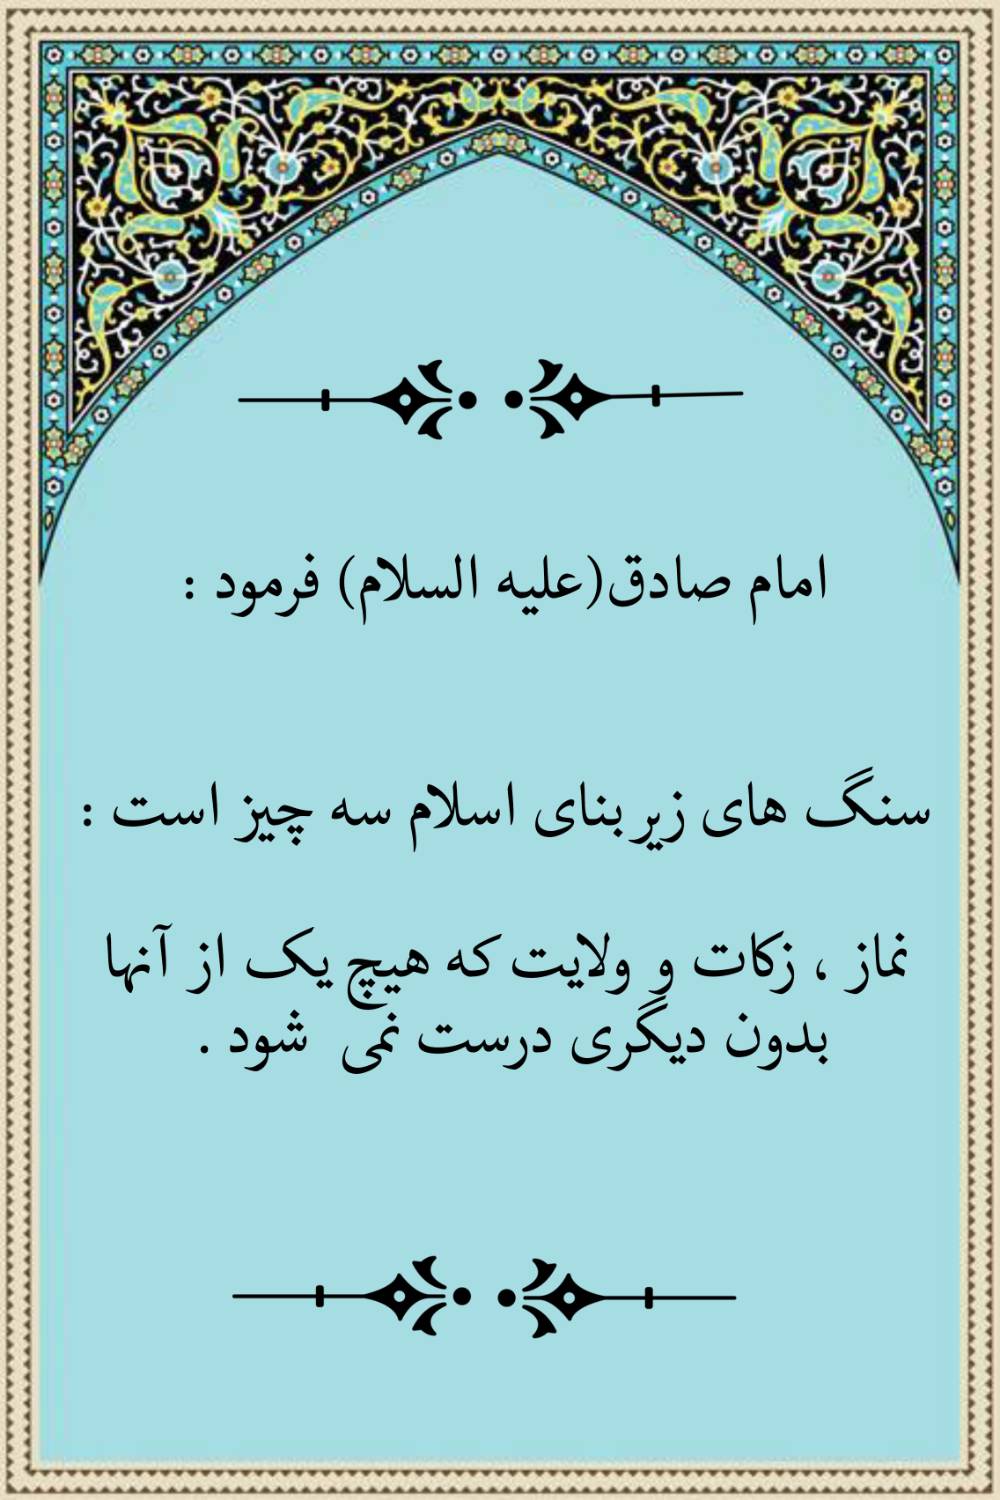 امام صادق(علیه السلام) فرمود :
سنگ های زیر بنای اسلام سه چیز است :
نماز ، زکات و ولایت که هیچ یک از آنها
بدون دیگری درست نمی شود .